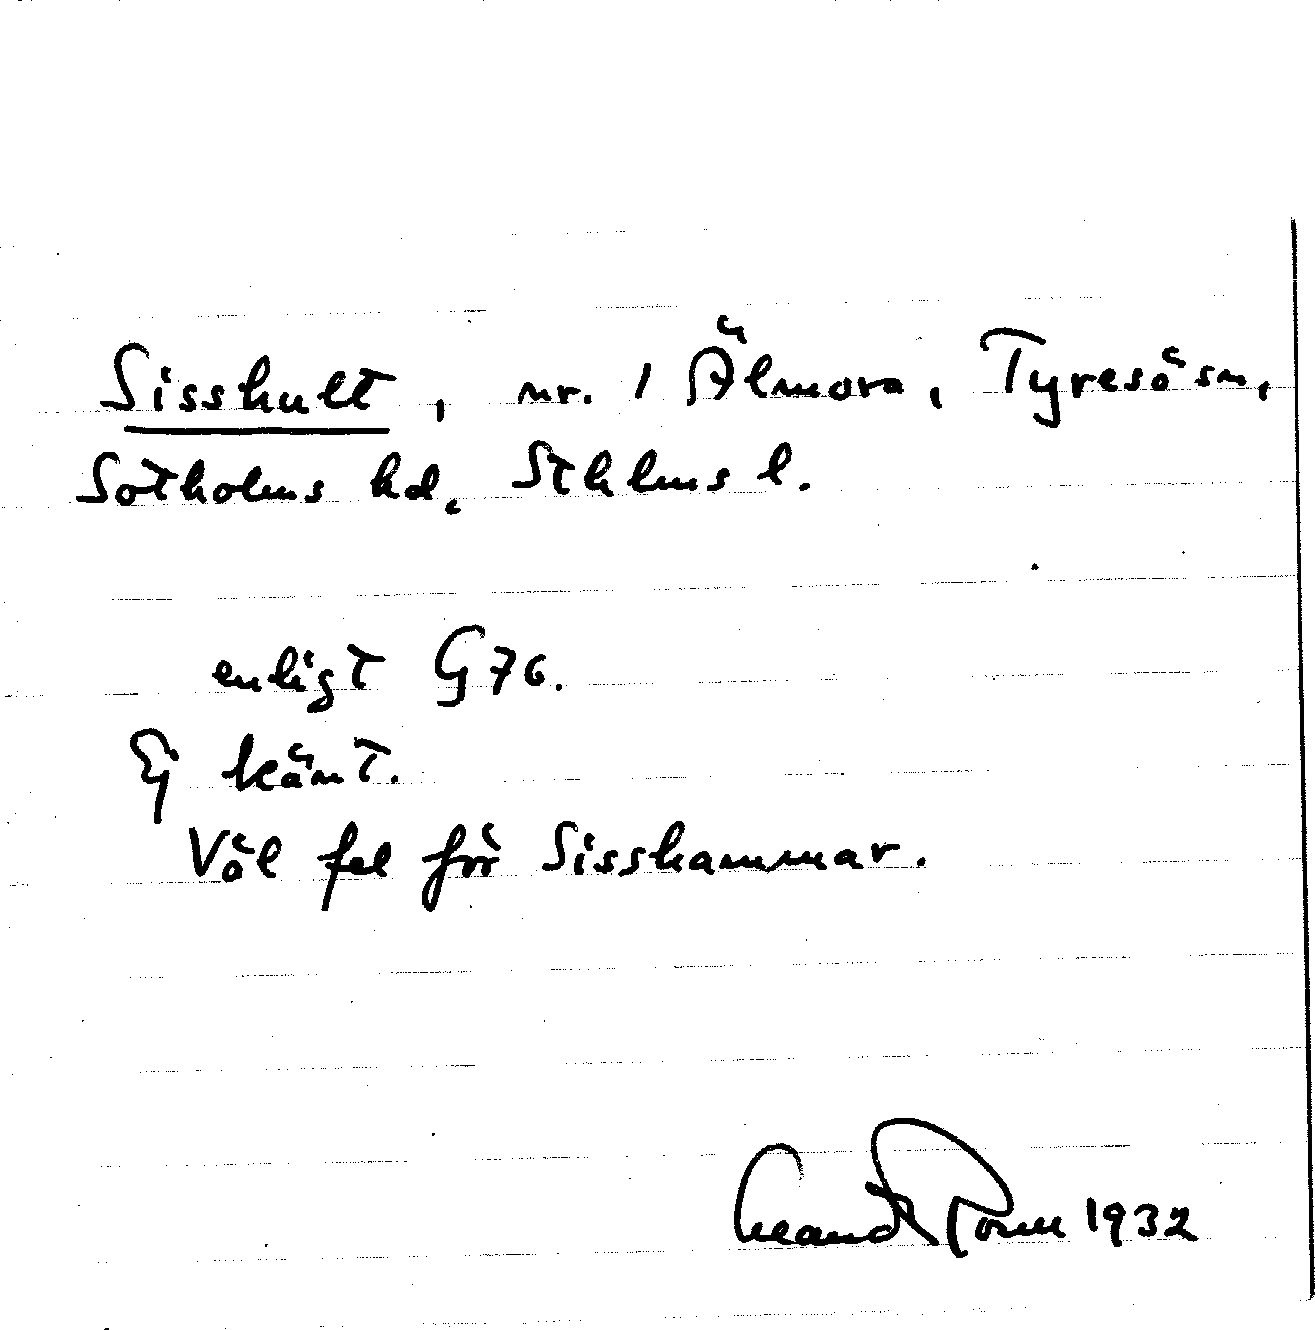 Sisshult, nr. 1 Älmora, Tyresö sn,
Sotholms hd. Sthlms l.
enligt G 76.
Ej känt.
Väl fel för Sisshammar.
1932